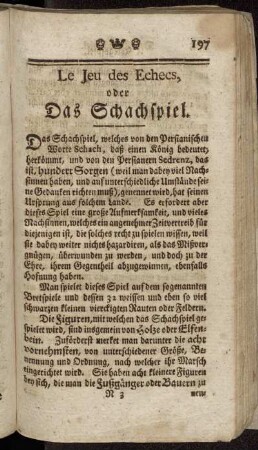 197
Le Jeu des Echecs,
oder
Das Schachspiel.
Das Schachspiel, welches von den Persianischen
Worte Schach, daß einen König bedeutet,
herkömmt, und von den Persianern Sedrenz, das
ist, hundert Sorgen (weil man dabey viel Nach-
sinnen haben, und auf unterschiedliche Umstände sei-
ne Gedanken richten muß), genennet wird, hat seinen
Ursprung aus solchem Lande. Es erfordert aber
dieses Spiel eine große Aufmerksamkeit, und vieles
Nachsinnen, welches ein angenehmer Zeitvertreib für
diejenigen ist, die solches recht zu spielen wissen, weil
sie dabey weiter nichts hazardiren, als das Mißver-
gnügen, überwunden zu werden, und doch zu der
Ehre, ihrem Gegentheil abzugewinnen, ebenfalls
Hofnung haben.
Man spielet dieses Spiel auf dem sogenannten
Bretspiele und dessen 32 weissen und eben so viel
schwarzen kleinen viereckigten Rauten oder Feldern.
Die Figuren, mit welchen das Schachspiel ge-
spielet wird, sind insgemein von Holze oder Elfen-
bein. Zuförderst merket man darunter die acht
vornehmsten, von unterschiedener Größe, Be-
nennung und Ordnung, nach welcher ihr Marsch
eingerichtet wird. Sie haben acht kleinere Figuren
bey sich, die man die Fußgänger oder Bauern zu
N 3 nen/